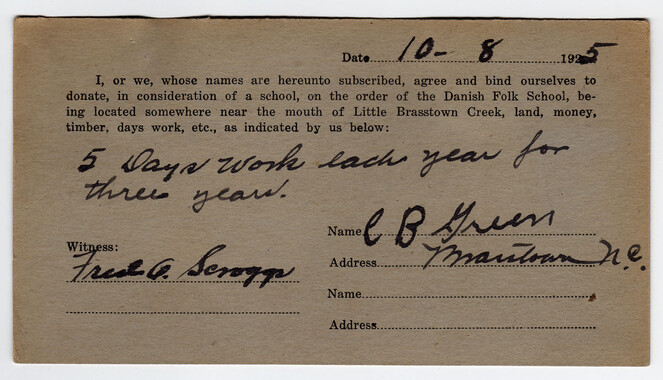 Date 10- 8 1925
I, or we, whose names are hereunto subscribed, agree and bind ourselves to
donate, in consideration of a school, on the order of the Danish Folk School, be-
ing located somewhere near the mouth of Little Brasstown Creek, land, money,
timber, days work, etc., as indicated by us below:
5 Days work each year for
three years.
Name C B Green
Witness:
Fred O. Scroggs
Address N.C.
Name
Address